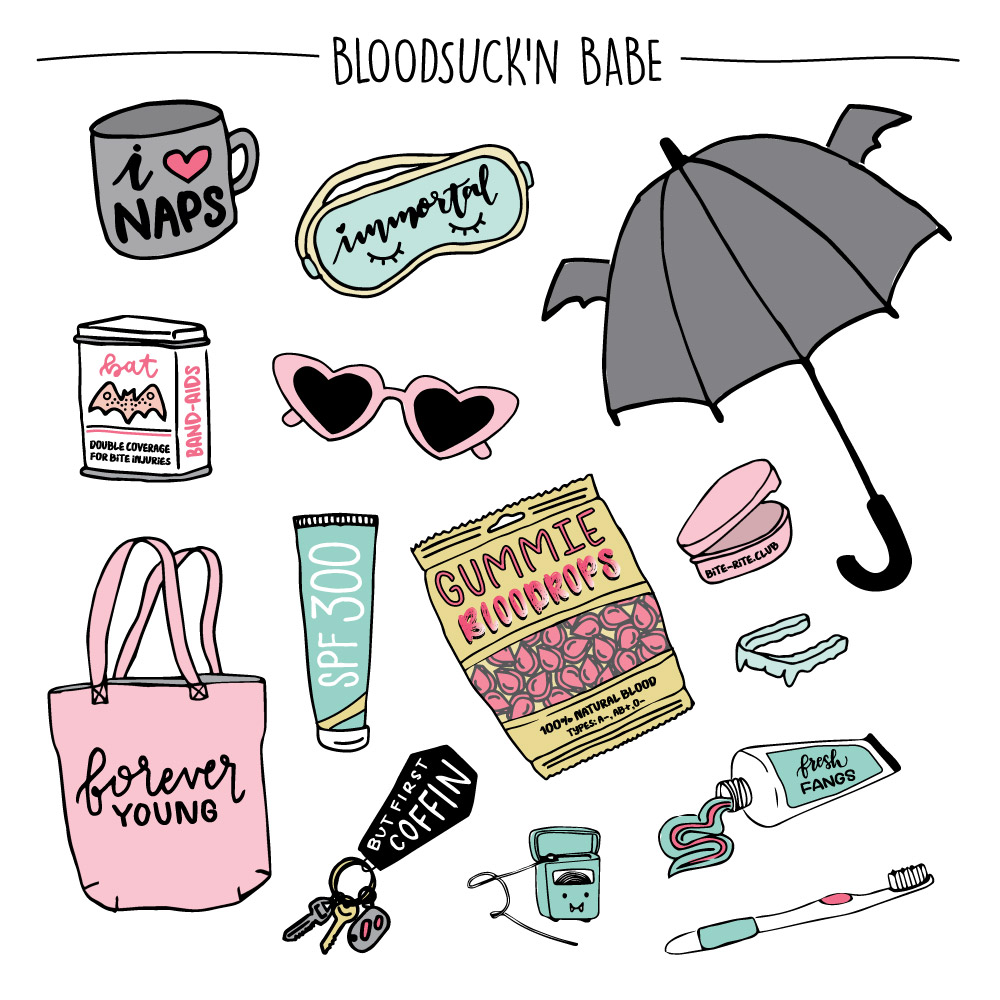 BLOODSUCK'N BABE
i ♥
NAPS
immortal
bat
DOUBLE COVERAGE
FOR BITE INJURIES
BAND-AIDS
SPF 300
GUMMIE
BLOODROPS
100% NATURAL BLOOD
TYPES: A-, AB+, O-
BITE-RITE.CLUB
forever
YOUNG
BUT FIRST
COFFIN
fresh
FANGS